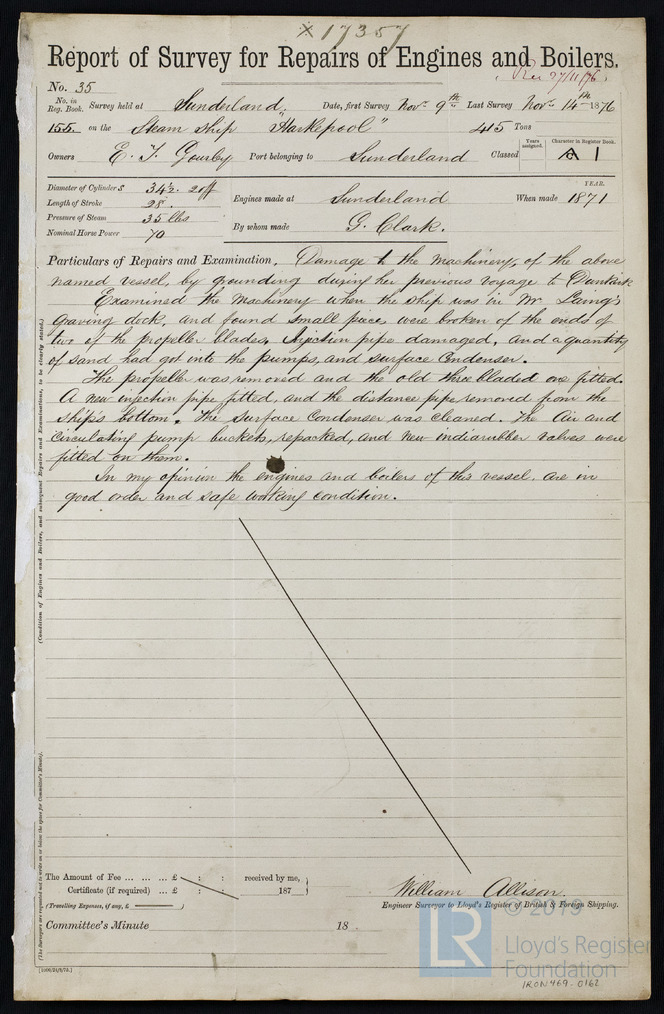 × 17357
Report of Survey for Repairs of Engines and Boilers.
Rec 27/11/76
No. 35
No. in Reg. Book. Survey held at Sunderland, Date, first Survey Novr 9th Last Survey Novr 14th 1876
155 on the Steam Ship "Hartlepool" 415 Tons
Years assigned. Character in Register Book.
Owners E. T. Gourley Port belonging to Sunderland Classed A 1
YEAR.
Diameter of Cylinders 34½ 20
Length of Stroke 28. Engines made at Sunderland When made 1871
Pressure of Steam 35 lbs
Nominal Horse Power 70 By whom made G. Clark.
Particulars of Repairs and Examination, Damage to the machinery, of the above
named vessel, by grounding during her previous voyage to
Examined the machinery when the ship was in Mr Laing's
Graving dock, and found small pieces were broken of the ends of
two of the propeller blades, Injection pipe damaged, and a quantity
of sand had got into the pumps, and surface Condenser.
The propeller was removed and the old three bladed one fitted.
A new injection pipe fitted, and the distance pipe removed from the
ship's bottom. The surface Condenser was cleaned. The Air and
Circulating pump buckets, repacked, and new indiarubber valves were
fitted on them.
In my opinion the engines and boilers of this vessel, are in
good order and safe working condition.
(Condition of Engines and Boilers, and subsequent Repairs and Examinations, to be clearly stated.)
(The Surveyors are requested not to write on or below the space for Committee's Minute).
The Amount of Fee ... ... ... £ : : received by me,
Certificate (if required) ... £ : : 187
(Travelling Expenses, if any, £ )
William Allison.
Engineer Surveyor to Lloyd's Register of British & Foreign Shipping.
Committee's Minute 18
© 2019
LR
Lloyd's Register
Foundation
IRON469-0162